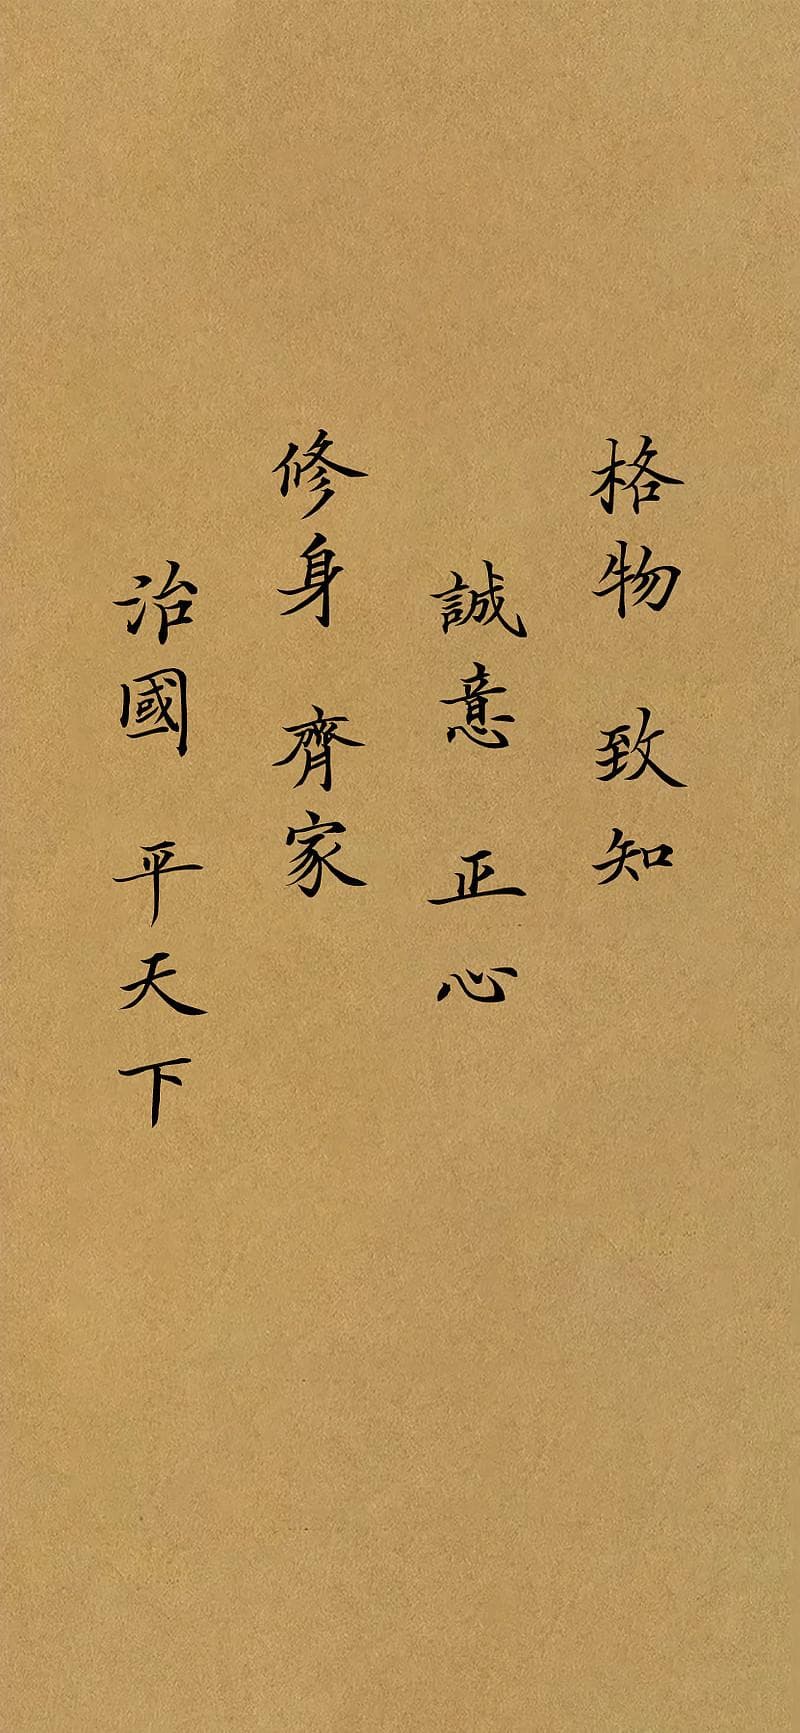 格物 致知
誠意 正心
修身 齊家
治國 平天下